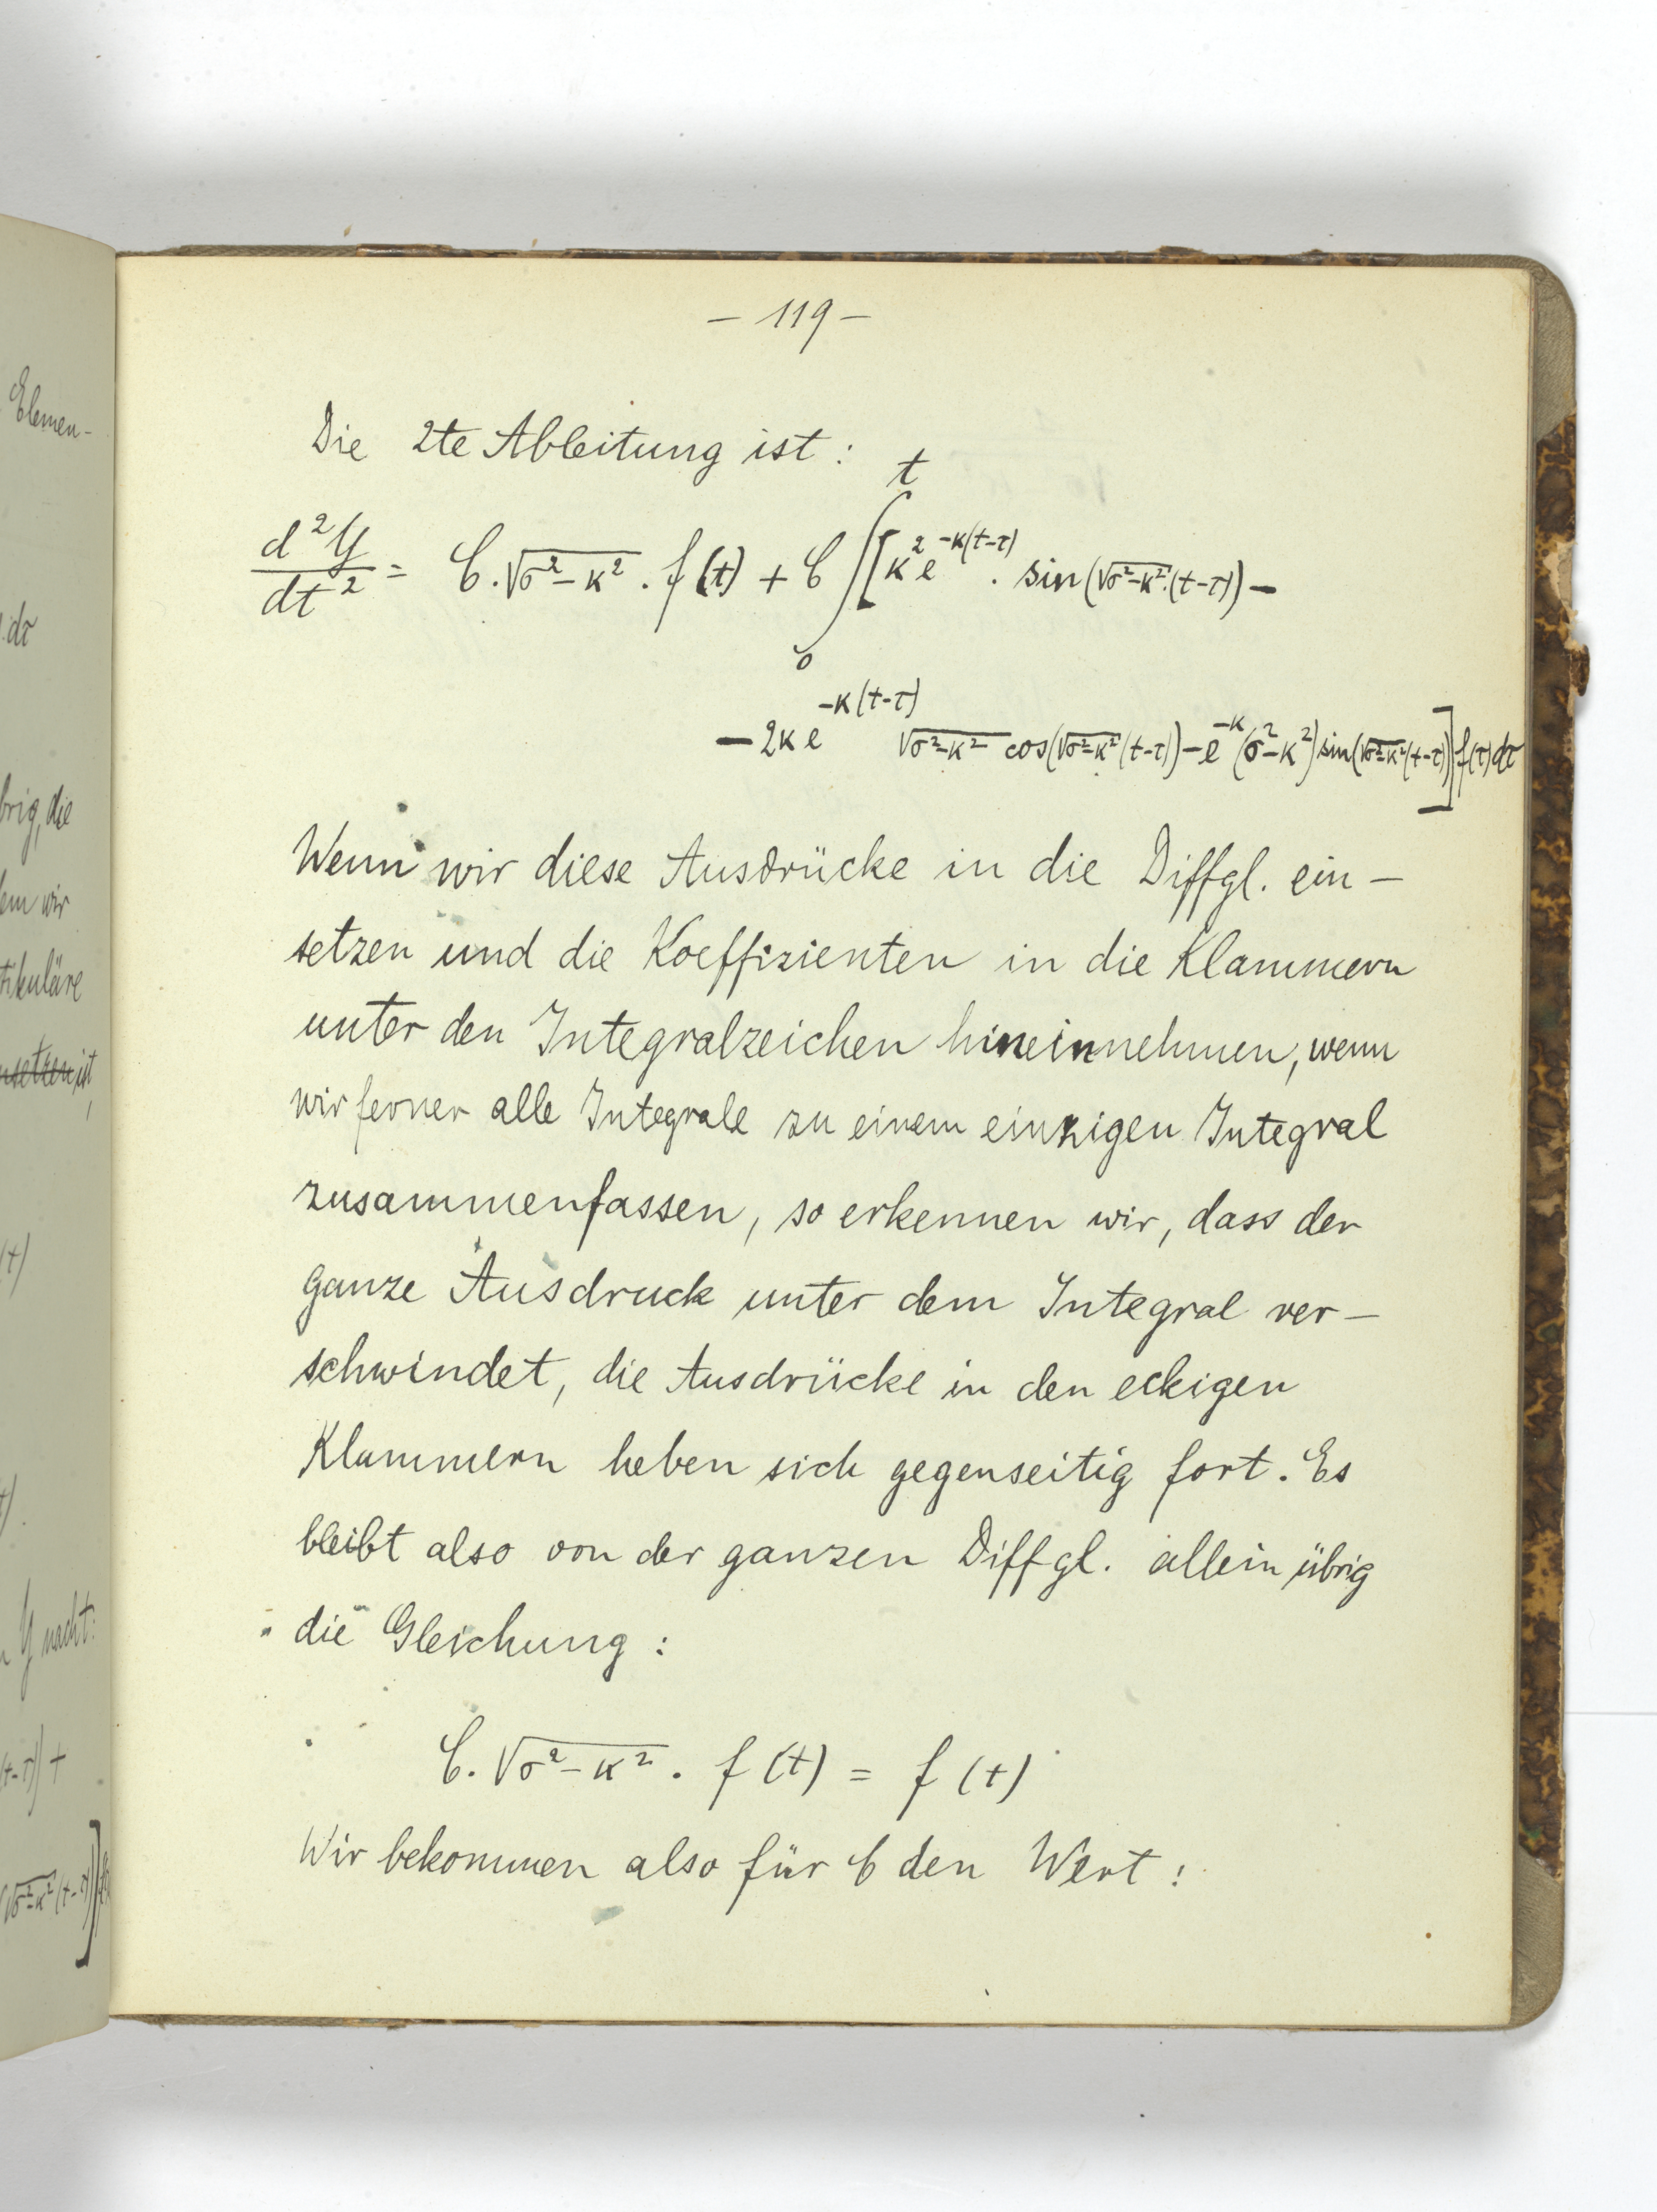 – 119 –
Die 2te Ableitung ist:
d²y/dt² = C.√σ²–κ² . f(t) + C ∫₀ᵗ [κ² e^–κ(t–τ) . sin(√σ²–κ².(t–τ)) –
– 2κ e^–κ(t–τ) √σ²–κ² cos(√σ²–κ²(t–τ)) – e^–κ (σ²–κ²) sin(√σ²–κ²(t–τ))] f(τ) dτ
Wenn wir diese Ausdrücke in die Diffgl. ein–
setzen und die Koeffizienten in die Klammern
unter den Integralzeichen hineinnehmen, wenn
wir ferner alle Integrale zu einem einzigen Integral
zusammenfassen, so erkennen wir, dass der
ganze Ausdruck unter dem Integral ver–
schwindet, die Ausdrücke in den eckigen
Klammern heben sich gegenseitig fort. Es
bleibt also von der ganzen Diffgl. allein übrig
die Gleichung:
C. √σ²–κ² . f(t) = f(t)
Wir bekommen also für C den Wert:
Elemen–
.dτ
brig, die
wir
tikuläre
ist,
(t)
y macht:
(t–τ)) +
√σ²–κ²(t–τ))]